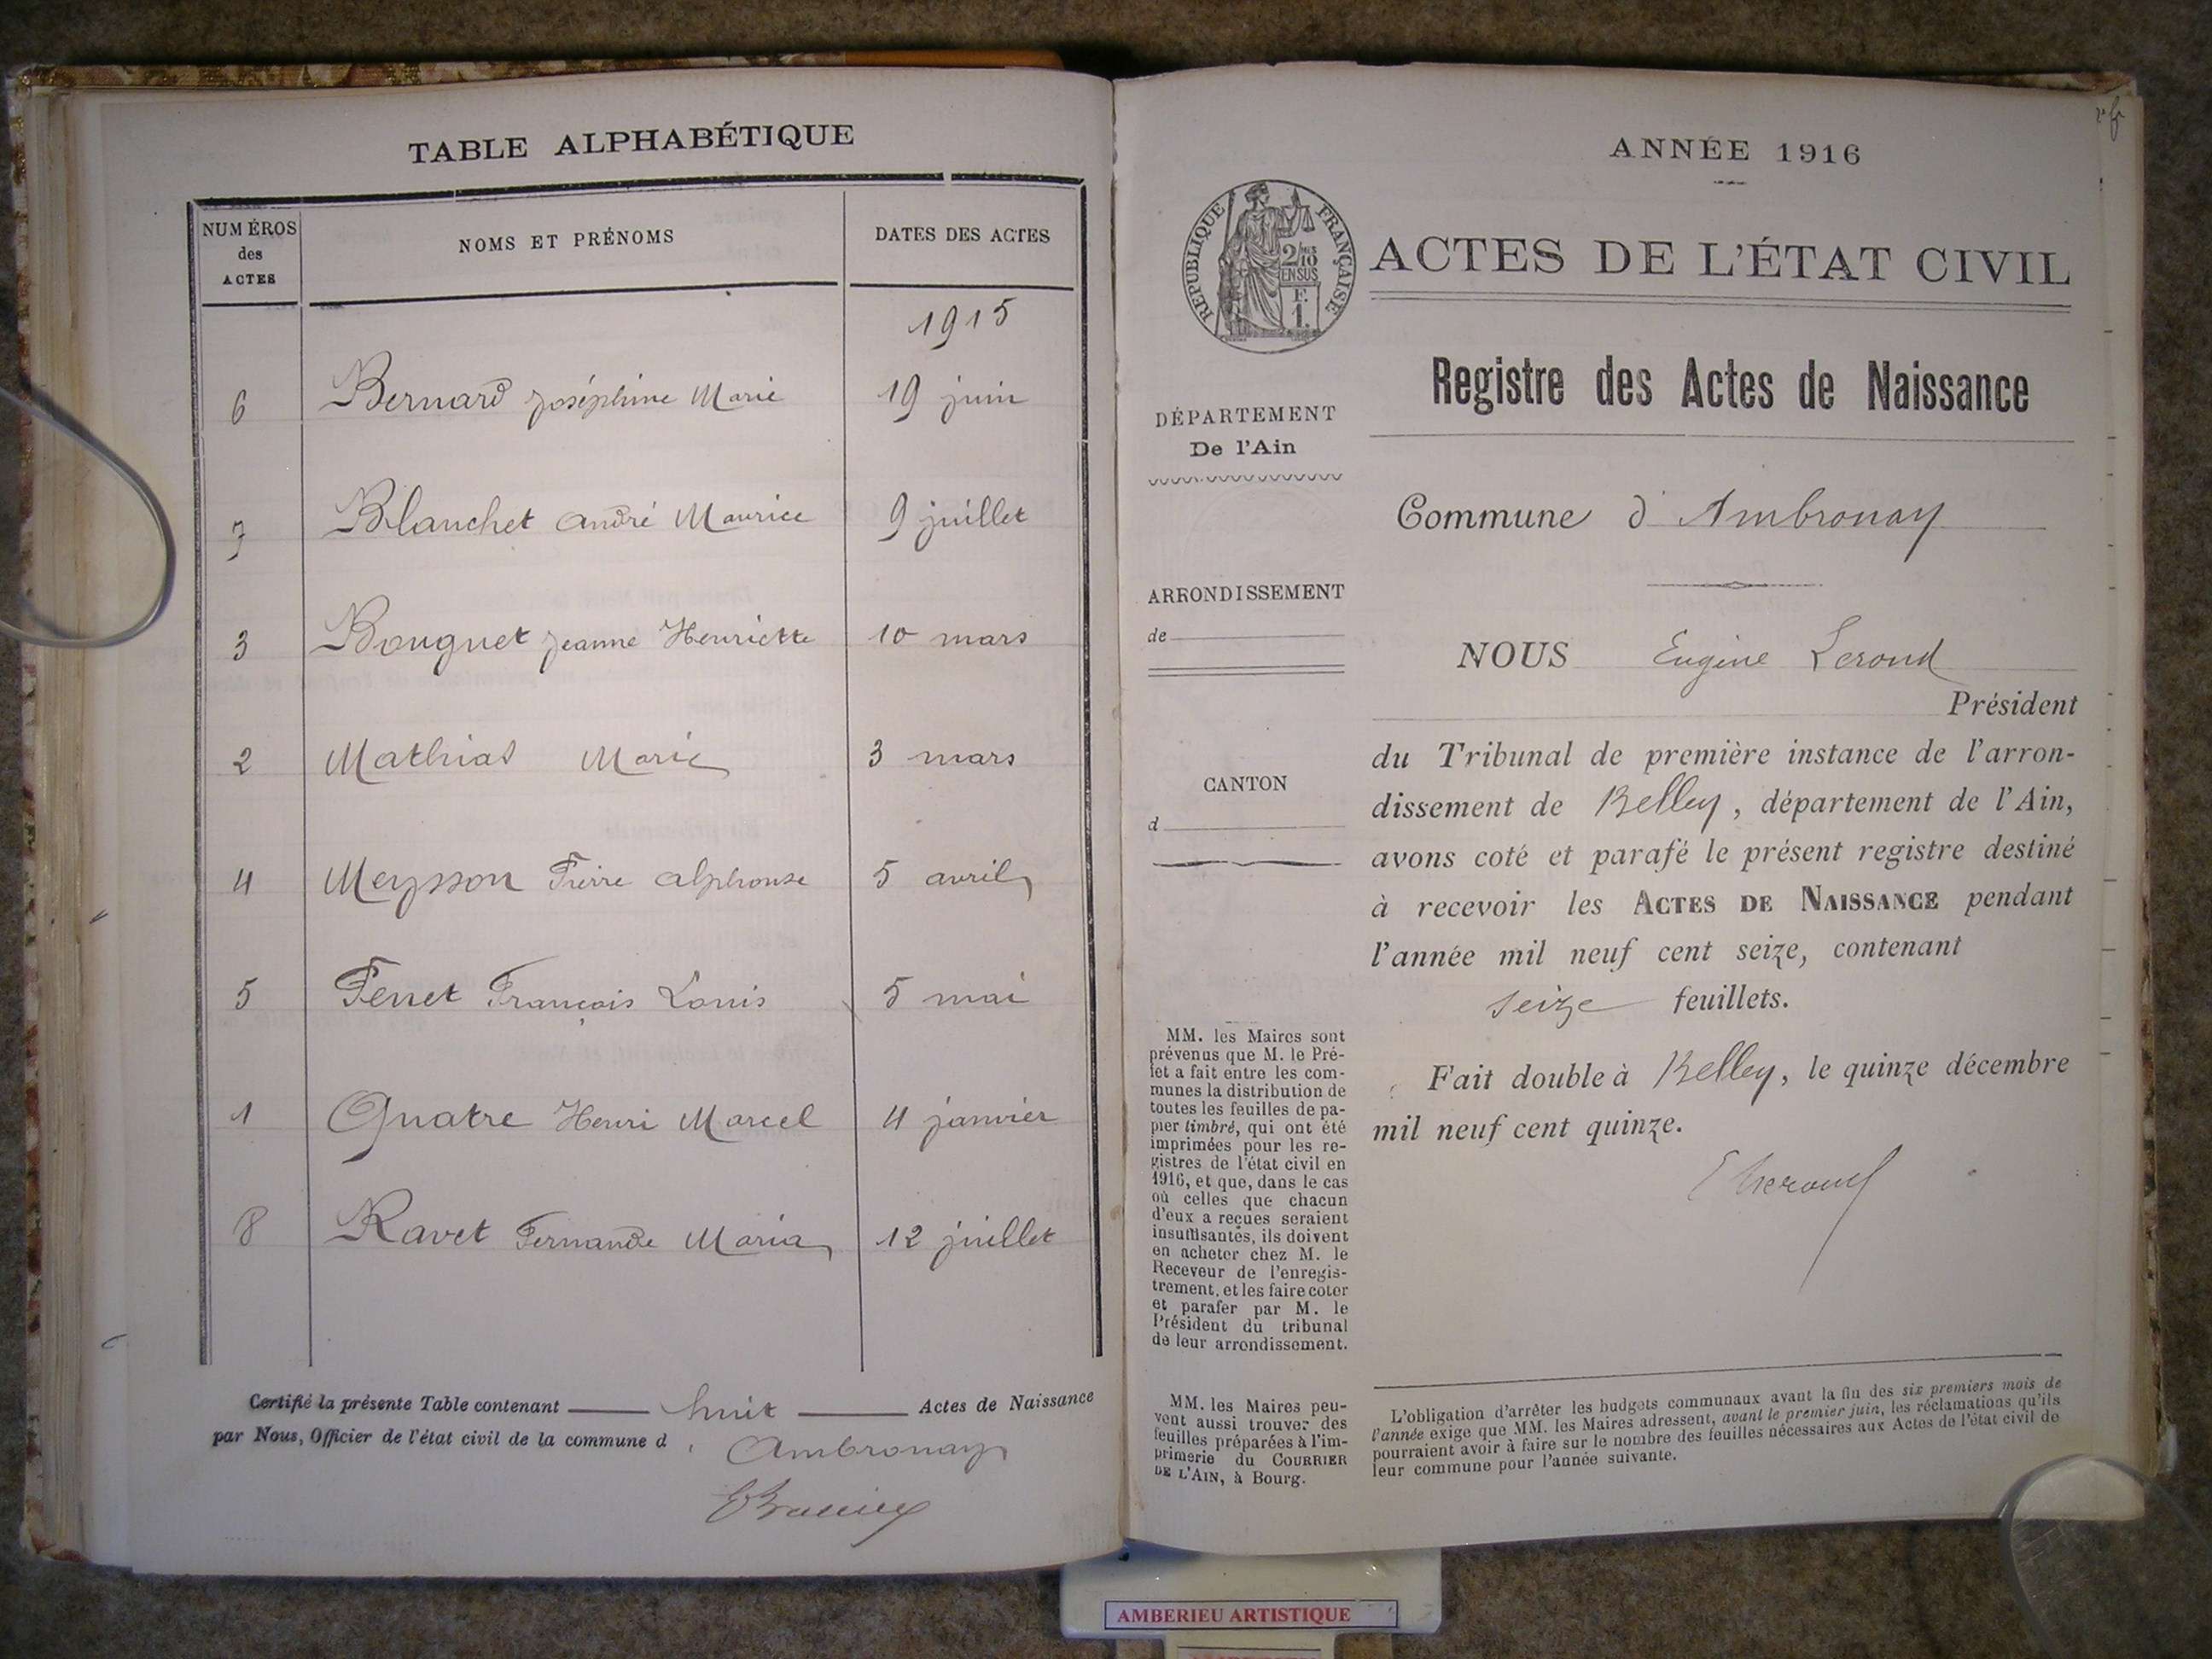 TABLE ALPHABÉTIQUE
NUMÉROS
des
ACTES
NOMS ET PRÉNOMS
DATES DES ACTES
1915
6 Bernard Joséphine Marie 19 juin
7 Blanchet André Maurice 9 juillet
3 Bouguet Jeanne Henriette 10 mars
2 Mathias Marie 3 mars
4 Meysson Pierre Alphonse 5 avril
5 Perret François Louis 5 mai
1 Quatre Henri Marcel 4 janvier
8 Ravet Fernande Maria 12 juillet
Certifié la présente Table contenant huit Actes de Naissance
par Nous, Officier de l'état civil de la commune d'Ambronay
ANNÉE 1916
RÉPUBLIQUE FRANÇAISE
2/10
EN SUS
F.
1.
ACTES DE L'ÉTAT CIVIL
Registre des Actes de Naissance
DÉPARTEMENT
De l'Ain
Commune d'Ambronay
ARRONDISSEMENT
de
CANTON
d
NOUS Eugène Lerond
Président
du Tribunal de première instance de l'arron-
dissement de Belley, département de l'Ain,
avons coté et parafé le présent registre destiné
à recevoir les ACTES DE NAISSANCE pendant
l'année mil neuf cent seize, contenant
seize feuillets.
Fait double à Belley, le quinze décembre
mil neuf cent quinze.
MM. les Maires sont
prévenus que M. le Pré-
fet a fait entre les com-
munes la distribution de
toutes les feuilles de pa-
pier timbré, qui ont été
imprimées pour les re-
gistres de l'état civil en
1916, et que, dans le cas
où celles que chacun
d'eux a reçues seraient
insuffisantes, ils doivent
en acheter chez M. le
Receveur de l'enregis-
trement, et les faire coter
et parafer par M. le
Président du tribunal
de leur arrondissement.
MM. les Maires peu-
vent aussi trouver des
feuilles préparées à l'im-
primerie du COURRIER
DE L'AIN, à Bourg.
L'obligation d'arrêter les budgets communaux avant la fin des six premiers mois de
l'année exige que MM. les Maires adressent, avant le premier juin, les réclamations qu'ils
pourraient avoir à faire sur le nombre des feuilles nécessaires aux Actes de l'état civil de
leur commune pour l'année suivante.
AMBERIEU ARTISTIQUE